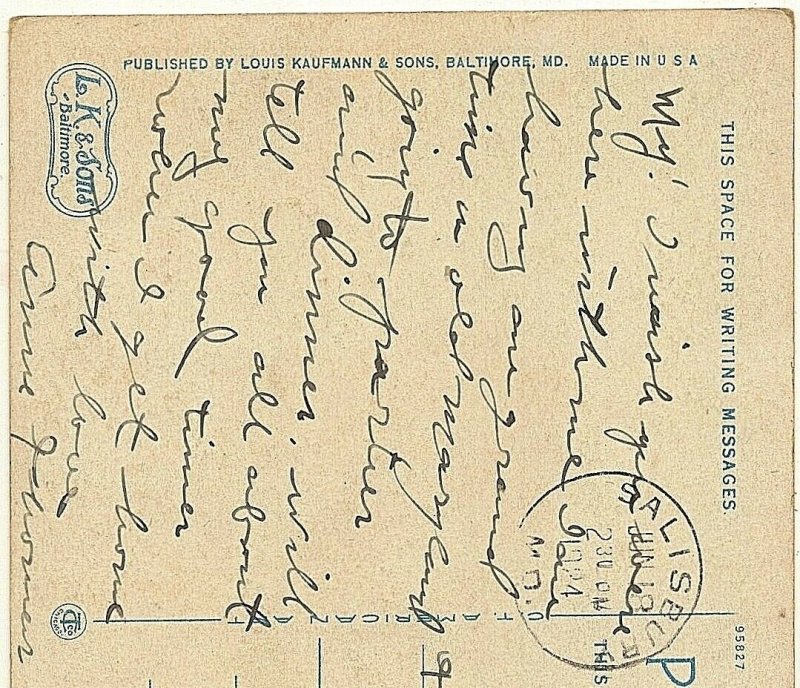 PUBLISHED BY LOUIS KAUFMANN & SONS, BALTIMORE, MD. MADE IN U S A
L.K.& Sons
Baltimore.
THIS SPACE FOR WRITING MESSAGES.
My! I wish you were
here with me I am
having one grand
time in old Maryland
going to parties
and dinner, will
tell you all about
my good times
when I get home
with love
Anne
SALISBUR
MD.
JUN 18
230 PM
1924
C.T. AMERICAN A
CTCO
CHICAGO
THIS
P
95827